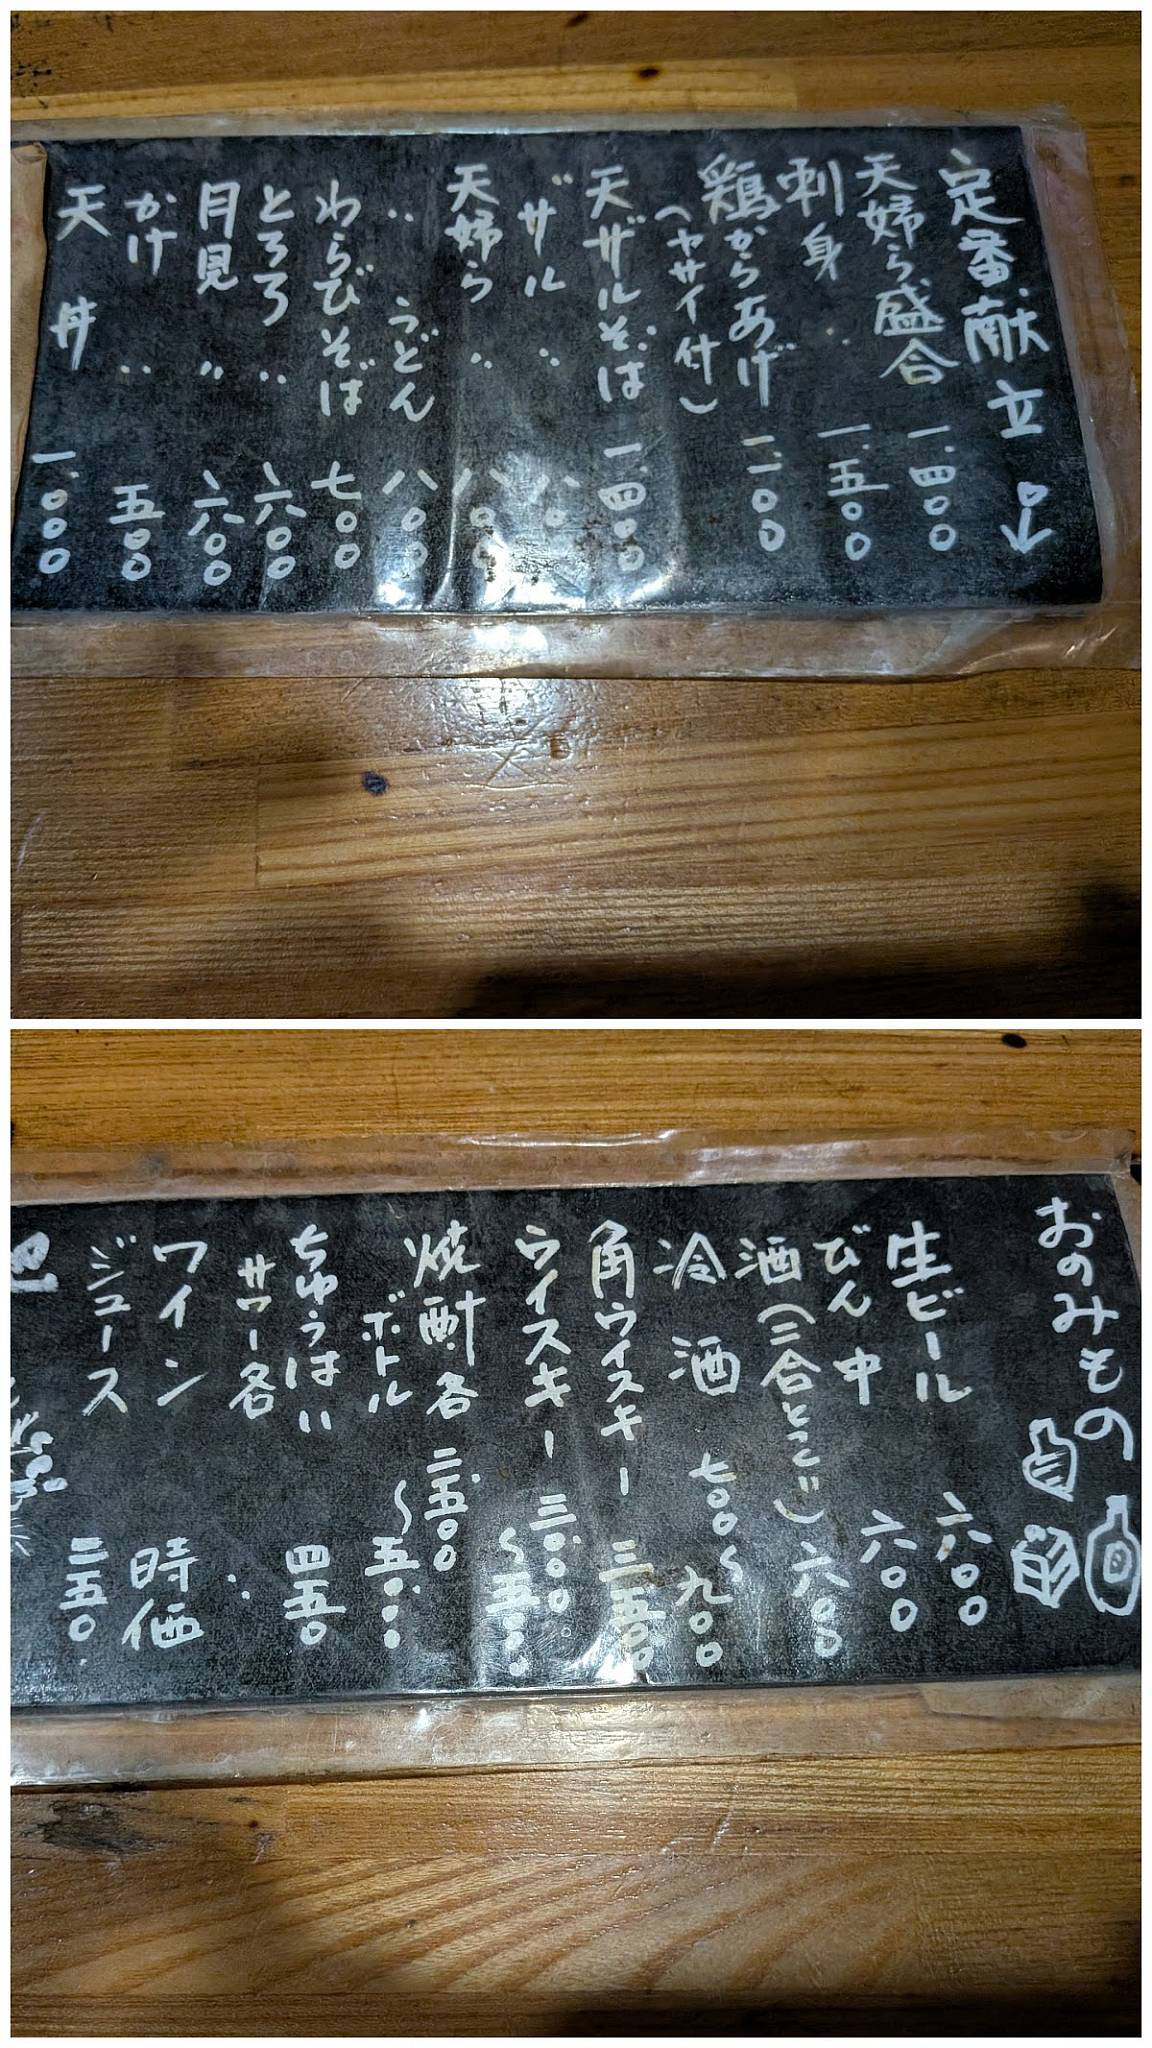 定番献立
天婦ら盛合 一.四〇〇
刺身 一.五〇〇
鶏からあげ 一.一〇〇
(ヤサイ付)
天ザルそば 一.四〇〇
ザル 〃 八〇〇
天婦ら 〃 八〇〇
〃 うどん 八〇〇
わらびそば 七〇〇
とろろ 〃 六〇〇
月見 〃 六〇〇
かけ 〃 五〇〇
天丼 一.〇〇〇
おのみもの
生ビール 六〇〇
びん中 六〇〇
酒(二合とっくり) 六〇〇
冷酒 七〇〇〜九〇〇
角ウイスキー 三.五〇〇
ウイスキー 三.〇〇〇〜五.〇〇〇
焼酎各 二.五〇〇
ボトル 〜五.〇〇〇
ちゅうはい 四五〇
サワー各 〃
ワイン 時価
ジュース 二五〇